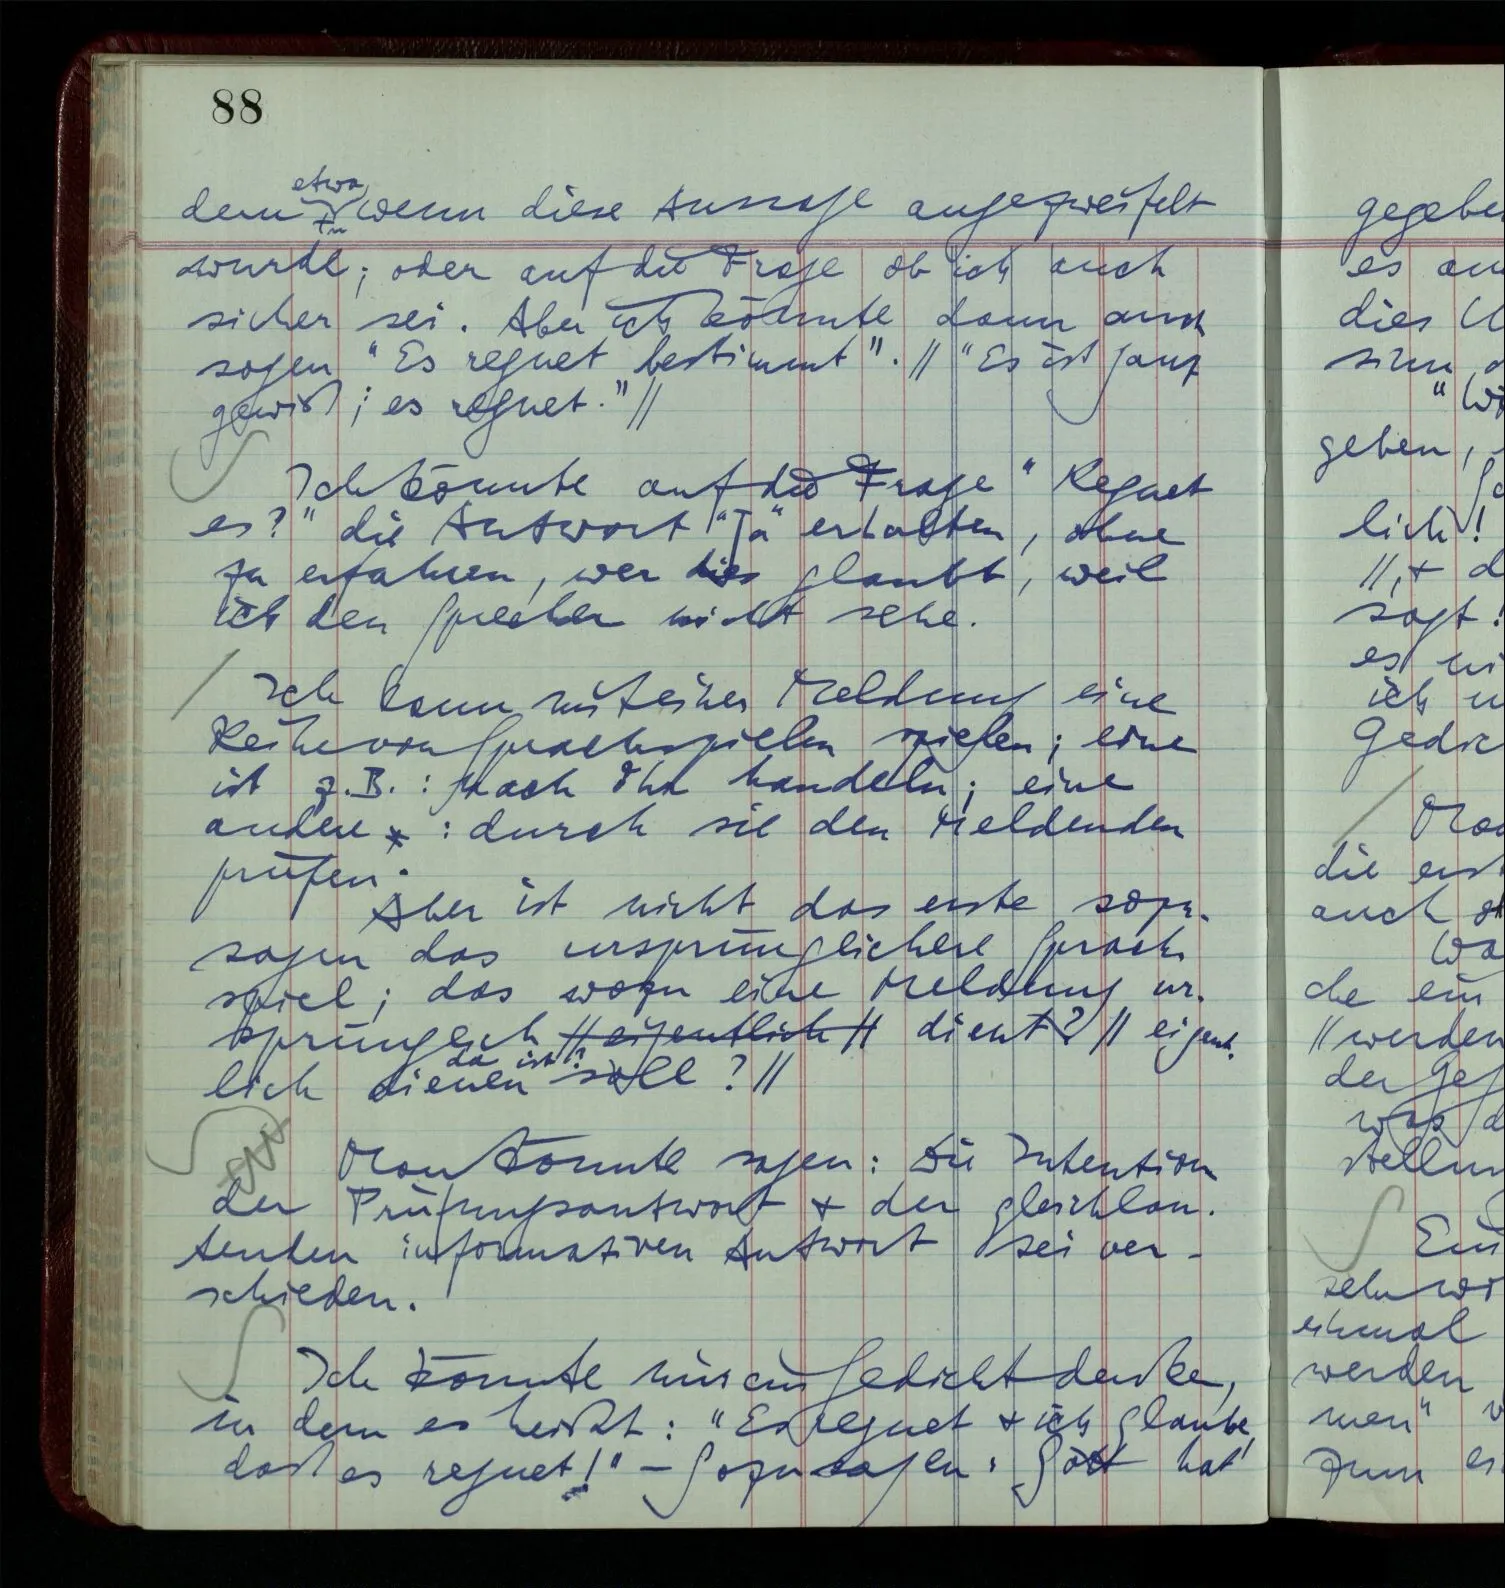 88
etwa
denn wenn diese Aussage angezweifelt
wurde; oder auf die Frage ob ich auch
sicher sei. Aber ich könnte dann auch
sagen "Es regnet bestimmt". // "Es ist ganz
gewiß; es regnet." //
Ich könnte auf die Frage "Regnet
es?" die Antwort "Ja" erhalten, ohne
zu erfahren, wer dies glaubt, weil
ich den Sprecher nicht sehe.
Ich kann mit einer Meldung eine
Reihe von Sprachspielen spielen; eine
ist z.B.: nach ihr handeln; eine
andere: durch sie den Meldenden
prüfen.
Aber ist nicht das erste sozu-
sagen das ursprünglichere Sprach-
spiel; das wozu eine Meldung ur-
sprünglich // eigentlich // dient? // eigent-
da ist?
lich dienen soll? //
Man könnte sagen: Die Intention
der Prüfungsantwort & der gleichlau-
tenden informativen Antwort sei ver-
schieden.
Ich könnte mir ein Gedicht denken,
in dem es heißt: "Es regnet & ich glaube,
daß es regnet!" – Sozusagen: Gott hat
gegeben
es
dies
geben,
lich!
sagt!
es
ich
Gedich
die
auch
che ein
// werden
der
was
stellun
sehn
einmal
werden
men"
zum